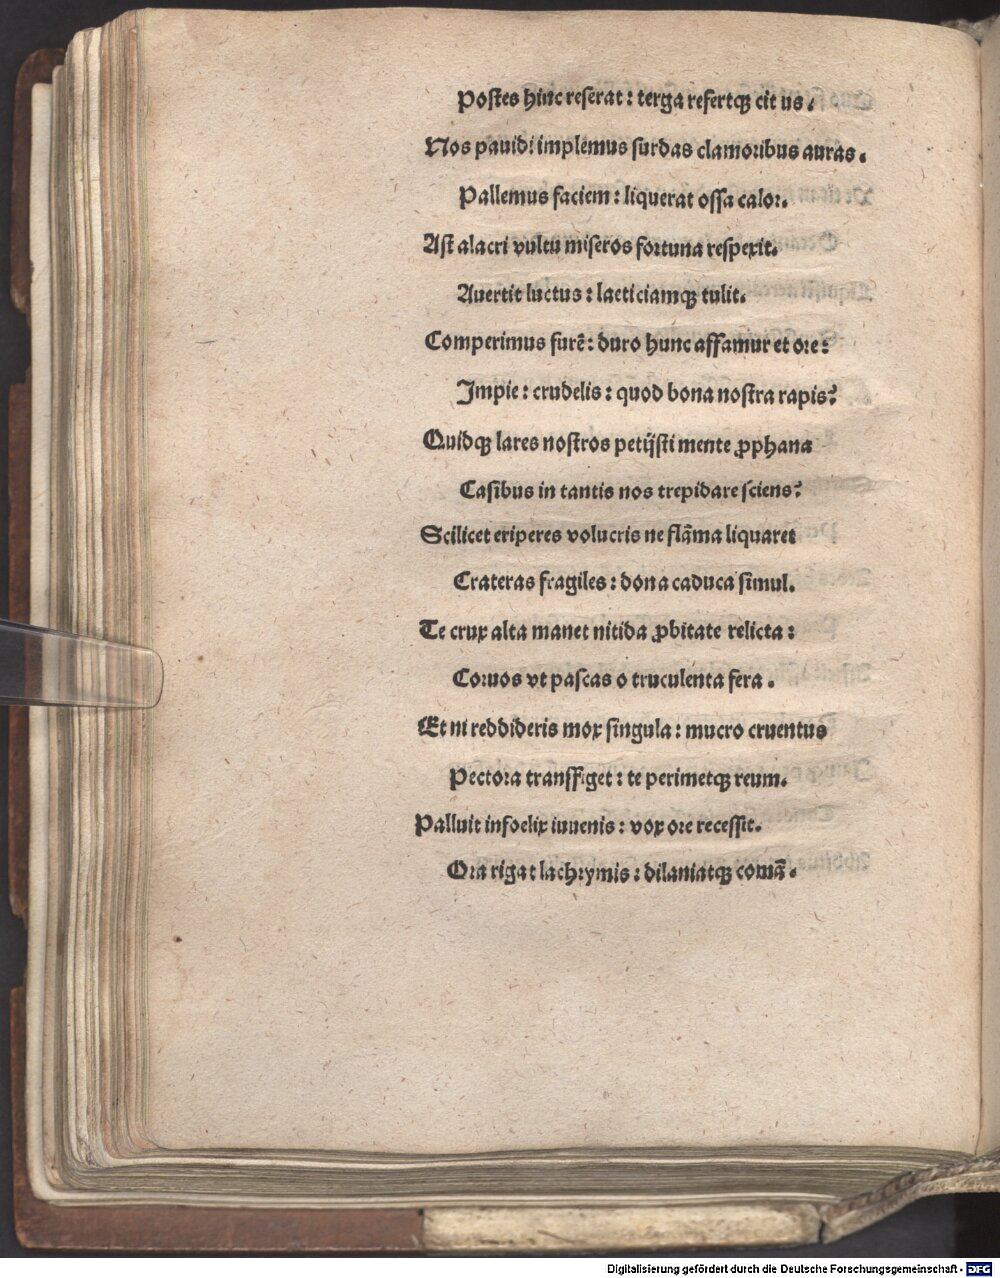 Postes hinc reserat : terga refertqꝫ cit us .
Nos pauidi implemus surdas clamoribus auras .
Pallemus faciem : liquerat ossa calor.
Ast alacri vultu miseros fortuna respexit.
Auertit luctus : laeticiamqꝫ tulit.
Comperimus furē : duro hunc affamur et ore :
Impie : crudelis : quod bona nostra rapis?
Quidqꝫ lares nostros petijsti mente ꝓphana
Casibus in tantis nos trepidare sciens?
Scilicet eriperes volucris ne flāma liquaret
Crateras fragiles : dona caduca simul.
Te crux alta manet nitida ꝓbitate relicta :
Coruos vt pascas o truculenta fera .
Et ni reddideris mox singula : mucro cruentus
Pectora transfiget : te perimetqꝫ reum.
Palluit infoelix iuuenis : vox ore recessit.
Ora rigat lachrymis : dilaniatqꝫ comā .
Digitalisierung gefördert durch die Deutsche Forschungsgemeinschaft - DFG